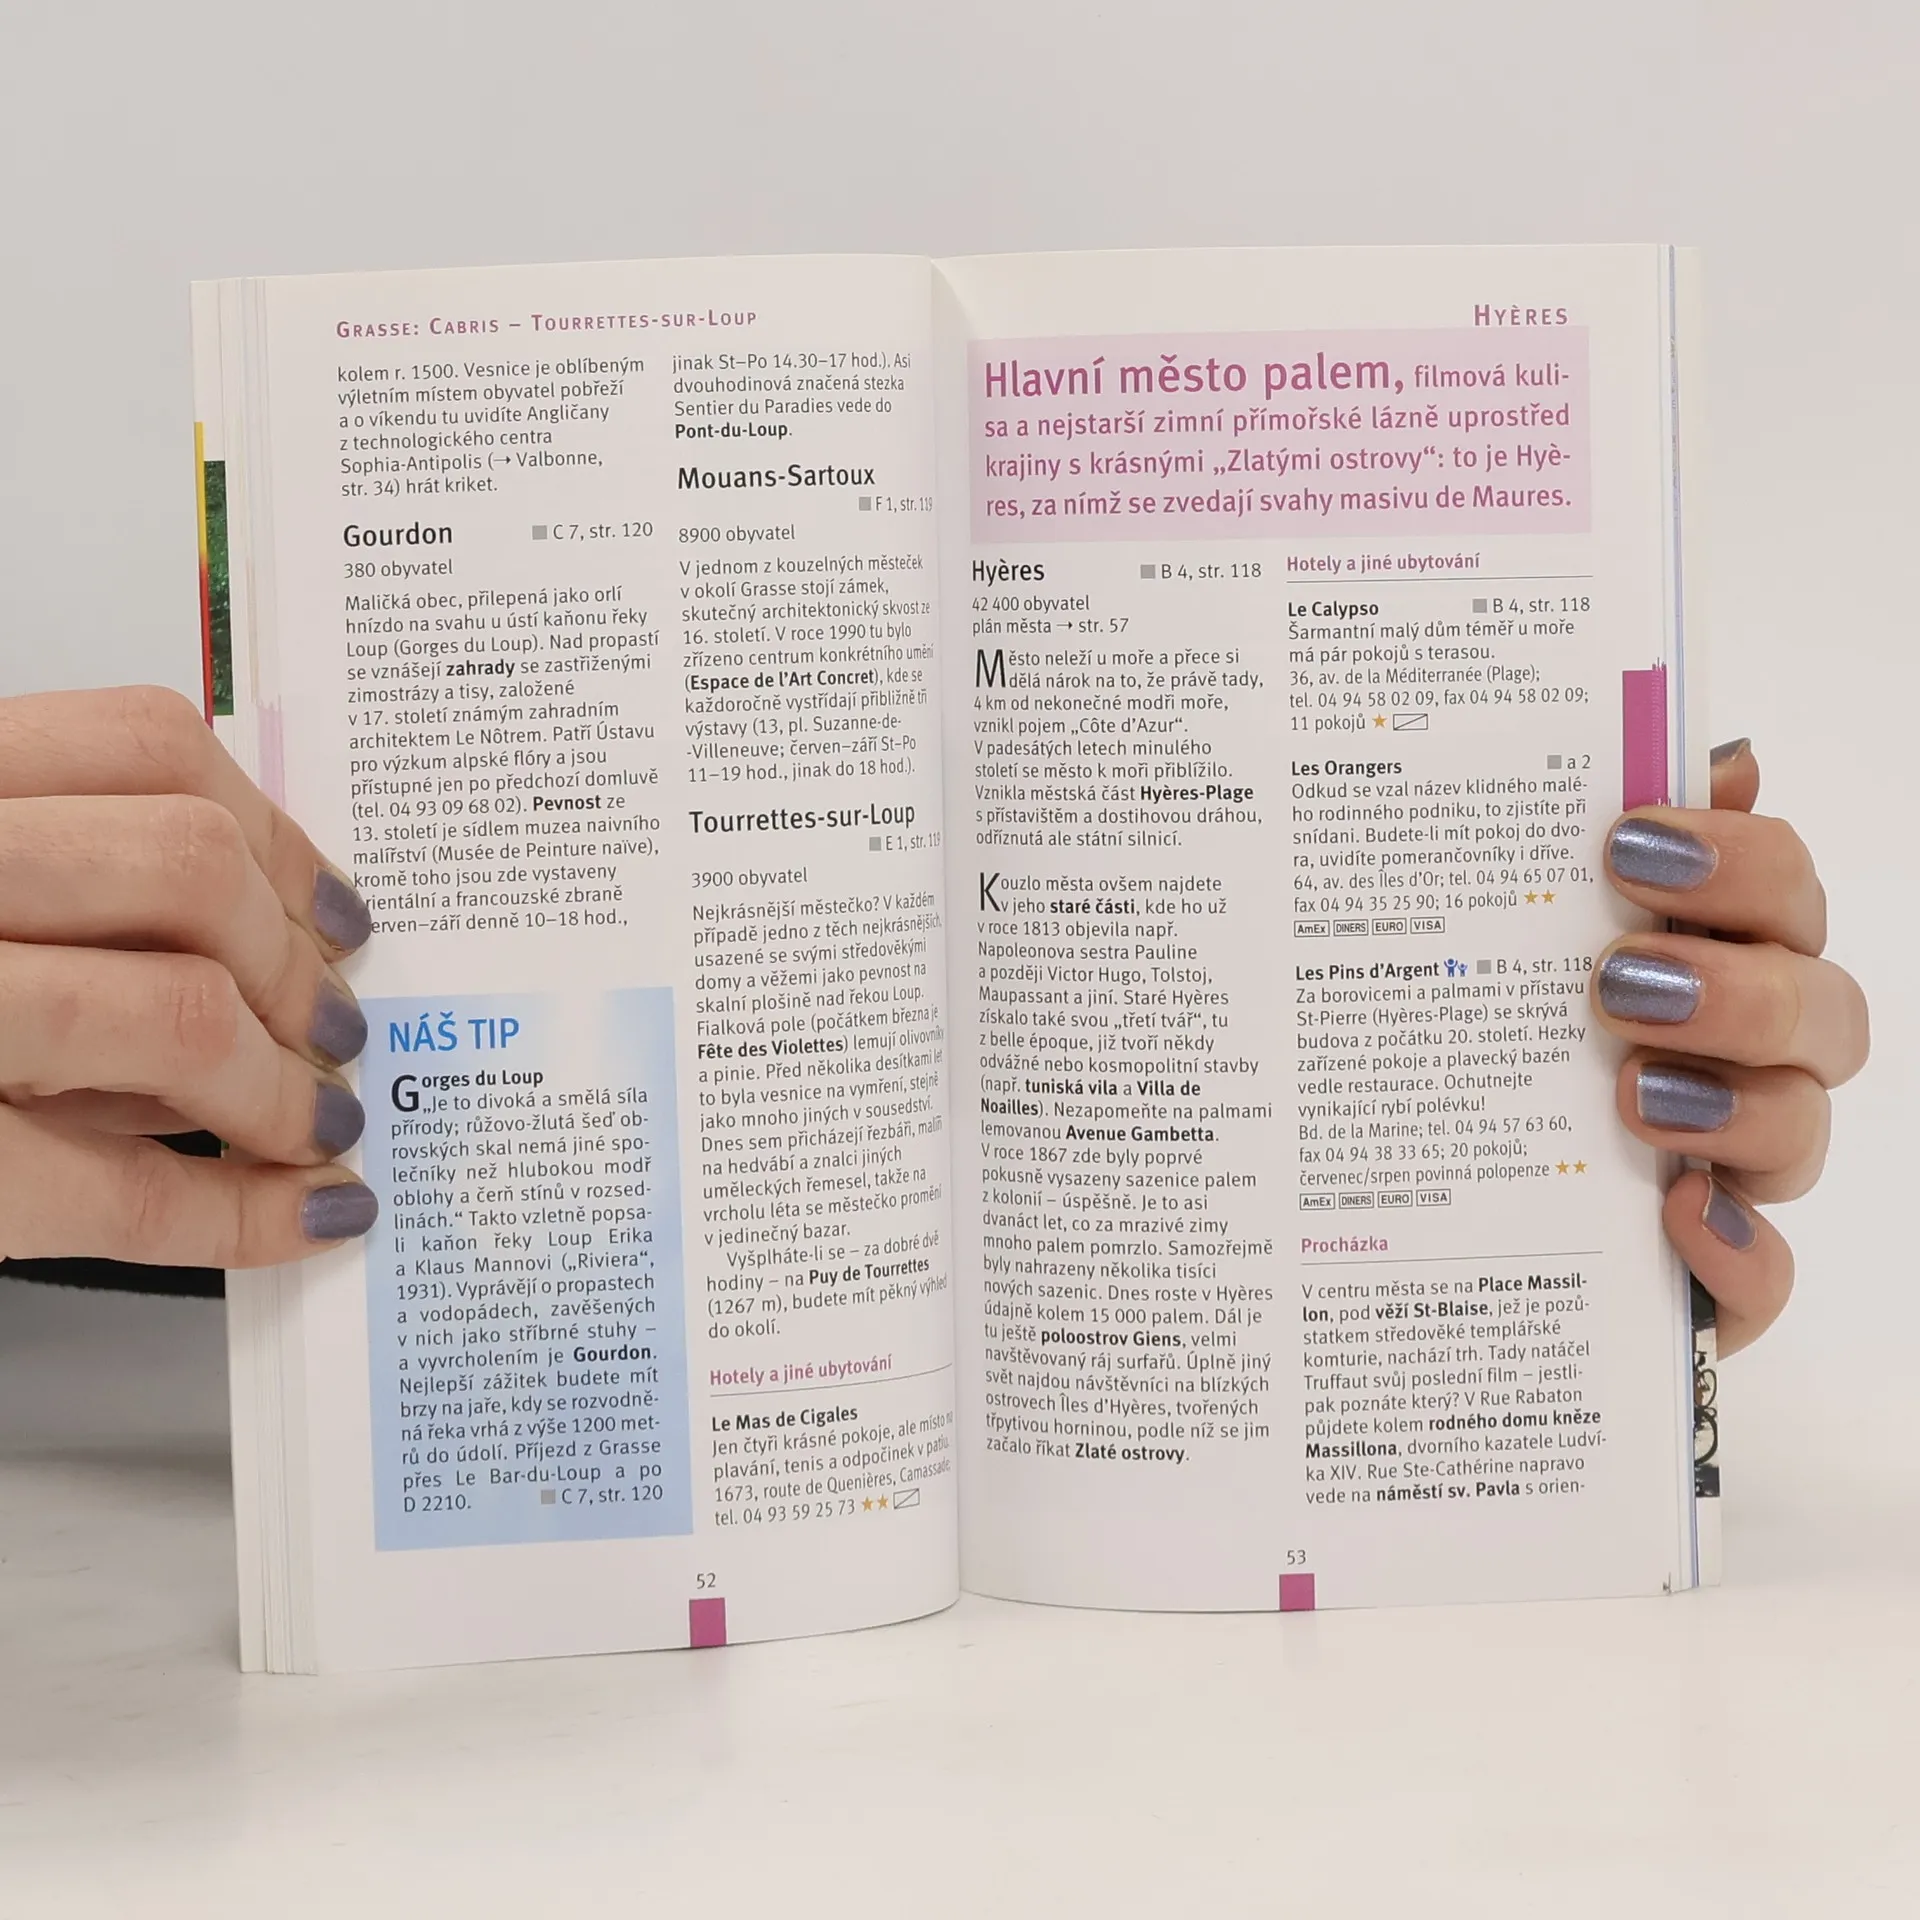 GRASSE: CABRIS – TOURRETTES-SUR-LOUP
kolem r. 1500. Vesnice je oblíbeným
výletním místem obyvatel pobřeží
a o víkendu tu uvidíte Angličany
z technologického centra
Sophia-Antipolis (→ Valbonne,
str. 34) hrát kriket.
Gourdon ■ C 7, str. 120
380 obyvatel
Maličká obec, přilepená jako orlí
hnízdo na svahu u ústí kaňonu řeky
Loup (Gorges du Loup). Nad propastí
se vznášejí zahrady se zastřiženými
zimostrázy a tisy, založené
v 17. století známým zahradním
architektem Le Nôtrem. Patří Ústavu
pro výzkum alpské flóry a jsou
přístupné jen po předchozí domluvě
(tel. 04 93 09 68 02). Pevnost ze
13. století je sídlem muzea naivního
malířství (Musée de Peinture naïve),
kromě toho jsou zde vystaveny
rientální a francouzské zbraně
erven–září denně 10–18 hod.,
NÁŠ TIP
Gorges du Loup
„Je to divoká a smělá síla
přírody; růžovo-žlutá šeď ob-
rovských skal nemá jiné spo-
lečníky než hlubokou modř
oblohy a čerň stínů v rozsed-
linách.“ Takto vzletně popsa-
li kaňon řeky Loup Erika
a Klaus Mannovi („Riviera“,
1931). Vyprávějí o propastech
a vodopádech, zavěšených
v nich jako stříbrné stuhy –
a vyvrcholením je Gourdon.
Nejlepší zážitek budete mít
brzy na jaře, kdy se rozvodně-
ná řeka vrhá z výše 1200 met-
rů do údolí. Příjezd z Grasse
přes Le Bar-du-Loup a po
D 2210. ■ C 7, str. 120
jinak St–Po 14.30–17 hod.). Asi
dvouhodinová značená stezka
Sentier du Paradies vede do
Pont-du-Loup.
Mouans-Sartoux
■ F 1, str. 119
8900 obyvatel
V jednom z kouzelných městeček
v okolí Grasse stojí zámek,
skutečný architektonický skvost ze
16. století. V roce 1990 tu bylo
zřízeno centrum konkrétního umění
(Espace de l’Art Concret), kde se
každoročně vystřídají přibližně tři
výstavy (13, pl. Suzanne-de-
-Villeneuve; červen–září St–Po
11–19 hod., jinak do 18 hod.).
Tourrettes-sur-Loup
■ E 1, str. 119
3900 obyvatel
Nejkrásnější městečko? V každém
případě jedno z těch nejkrásnějších,
usazené se svými středověkými
domy a věžemi jako pevnost na
skalní plošině nad řekou Loup.
Fialková pole (počátkem března je
Fête des Violettes) lemují olivovníky
a pinie. Před několika desítkami let
to byla vesnice na vymření, stejně
jako mnoho jiných v sousedství.
Dnes sem přicházejí řezbáři, malíři
na hedvábí a znalci jiných
uměleckých řemesel, takže na
vrcholu léta se městečko promění
v jedinečný bazar.
Vyšplháte-li se – za dobré dvě
hodiny – na Puy de Tourrettes
(1267 m), budete mít pěkný výhled
do okolí.
Hotely a jiné ubytování
Le Mas de Cigales
Jen čtyři krásné pokoje, ale místo na
plavání, tenis a odpočinek v patiu.
1673, route de Quenières, Camassade,
tel. 04 93 59 25 73 ★★
52
HYÈRES
Hlavní město palem, filmová kuli-
sa a nejstarší zimní přímořské lázně uprostřed
krajiny s krásnými „Zlatými ostrovy“: to je Hyè-
res, za nímž se zvedají svahy masivu de Maures.
Hyères ■ B 4, str. 118
42 400 obyvatel
plán města → str. 57
Město neleží u moře a přece si
dělá nárok na to, že právě tady,
4 km od nekonečné modři moře,
vznikl pojem „Côte d’Azur“.
V padesátých letech minulého
století se město k moři přiblížilo.
Vznikla městská část Hyères-Plage
s přístavištěm a dostihovou dráhou,
odříznutá ale státní silnicí.
Kouzlo města ovšem najdete
v jeho staré části, kde ho už
v roce 1813 objevila např.
Napoleonova sestra Pauline
a později Victor Hugo, Tolstoj,
Maupassant a jiní. Staré Hyères
získalo také svou „třetí tvář“, tu
z belle époque, již tvoří někdy
odvážné nebo kosmopolitní stavby
(např. tuniská vila a Villa de
Noailles). Nezapomeňte na palmami
lemovanou Avenue Gambetta.
V roce 1867 zde byly poprvé
pokusně vysazeny sazenice palem
z kolonií – úspěšně. Je to asi
dvanáct let, co za mrazivé zimy
mnoho palem pomrzlo. Samozřejmě
byly nahrazeny několika tisíci
nových sazenic. Dnes roste v Hyères
údajně kolem 15 000 palem. Dál je
tu ještě poloostrov Giens, velmi
navštěvovaný ráj surfařů. Úplně jiný
svět najdou návštěvníci na blízkých
ostrovech Îles d’Hyères, tvořených
třpytivou horninou, podle níž se jim
začalo říkat Zlaté ostrovy.
Hotely a jiné ubytování
Le Calypso ■ B 4, str. 118
Šarmantní malý dům téměř u moře
má pár pokojů s terasou.
36, av. de la Méditerranée (Plage);
tel. 04 94 58 02 09, fax 04 94 58 02 09;
11 pokojů ★
Les Orangers ■ a 2
Odkud se vzal název klidného malé-
ho rodinného podniku, to zjistíte při
snídani. Budete-li mít pokoj do dvo-
ra, uvidíte pomerančovníky i dříve.
64, av. des Îles d’Or; tel. 04 94 65 07 01,
fax 04 94 35 25 90; 16 pokojů ★★
AmEx DINERS EURO VISA
Les Pins d’Argent ■ B 4, str. 118
Za borovicemi a palmami v přístavu
St-Pierre (Hyères-Plage) se skrývá
budova z počátku 20. století. Hezky
zařízené pokoje a plavecký bazén
vedle restaurace. Ochutnejte
vynikající rybí polévku!
Bd. de la Marine; tel. 04 94 57 63 60,
fax 04 94 38 33 65; 20 pokojů;
červenec/srpen povinná polopenze ★★
AmEx DINERS EURO VISA
Procházka
V centru města se na Place Massil-
lon, pod věží St-Blaise, jež je pozů-
statkem středověké templářské
komturie, nachází trh. Tady natáčel
Truffaut svůj poslední film – jestli-
pak poznáte který? V Rue Rabaton
půjdete kolem rodného domu kněze
Massillona, dvorního kazatele Ludví-
ka XIV. Rue Ste-Cathérine napravo
vede na náměstí sv. Pavla s orien-
53